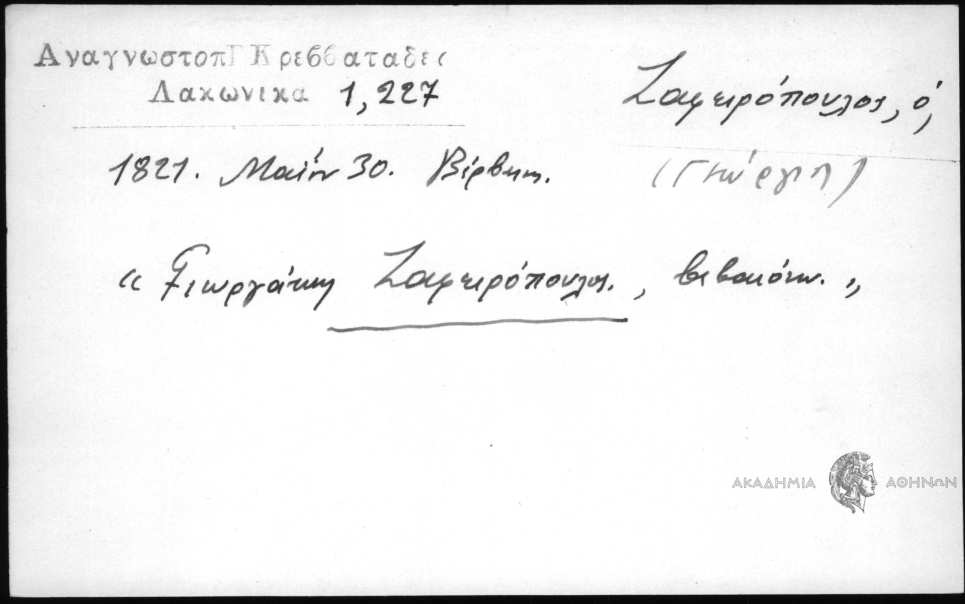 Αναγνωστοπ Γ Κρεββαταδες
Λακωνικα 1,227
Ζαφειρόπουλος, ὁ,
1821. Μαΐου 30. Βέρβενα.
(Γεώργιος)
« Γεωργάκης Ζαφειρόπουλος, βεβαιόνω. »
ΑΚΑΔΗΜΙΑ ΑΘΗΝΩΝ